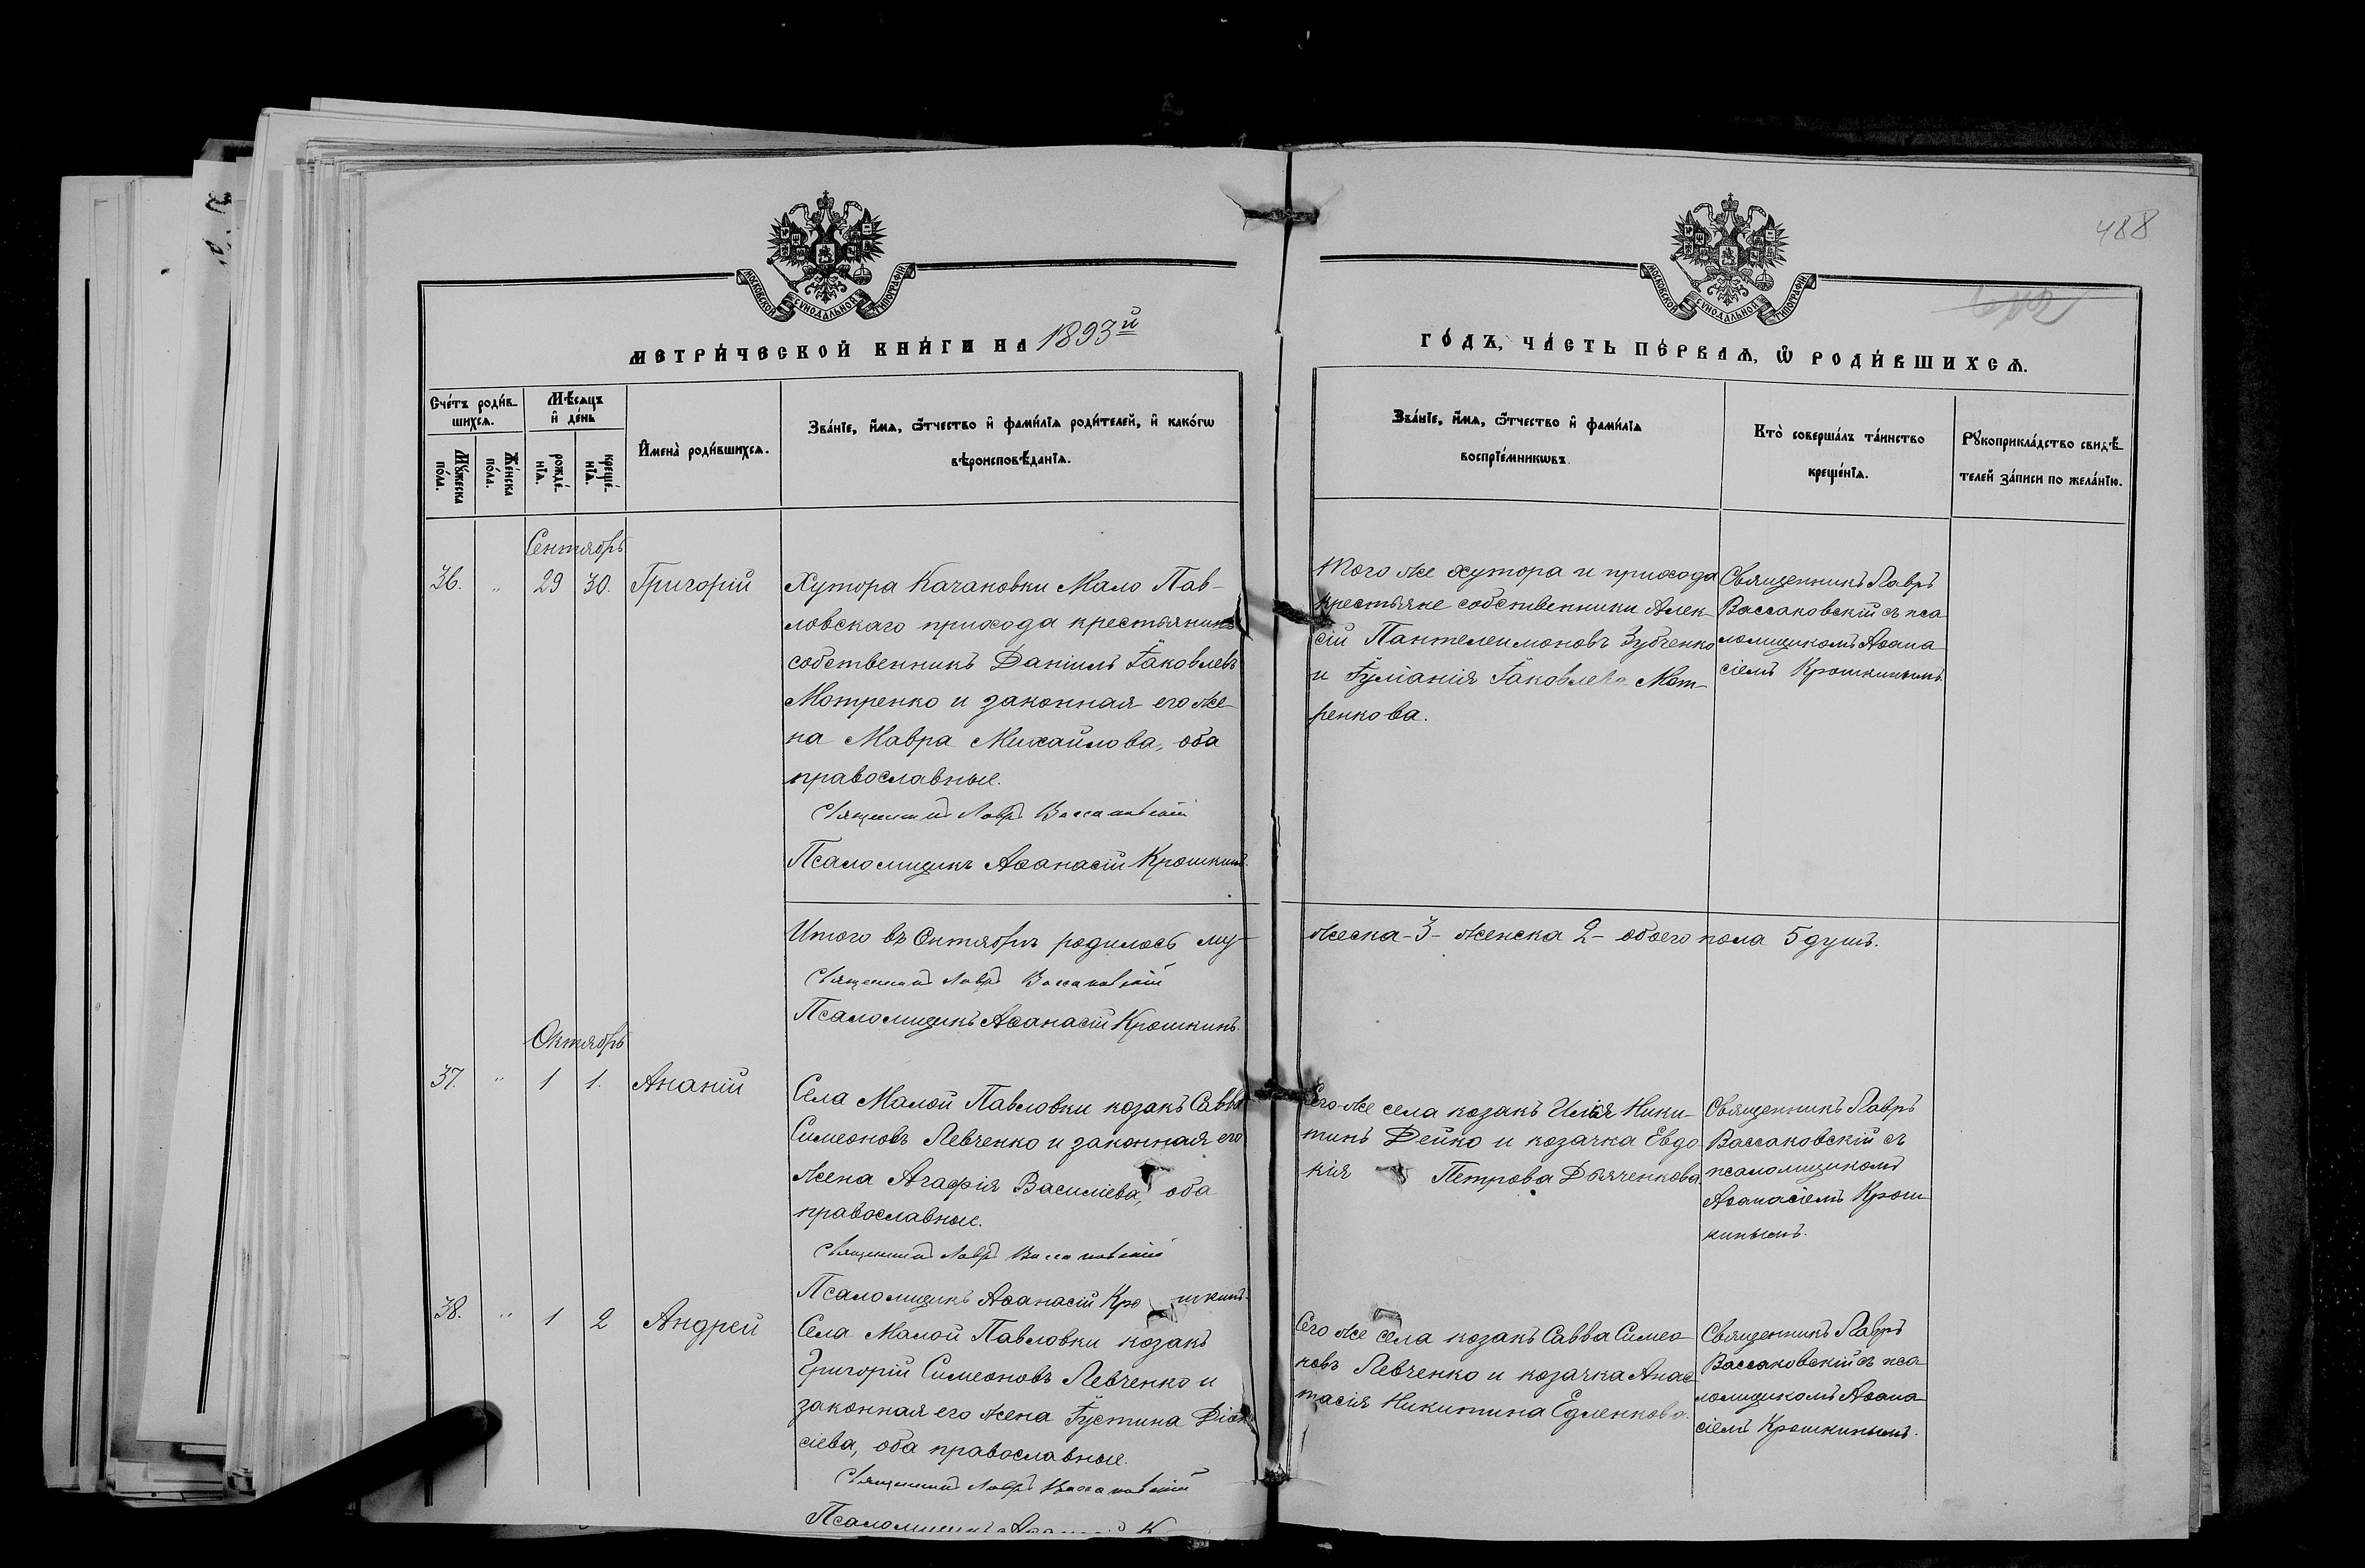 488
МОСКОВСКОЙ СѴНОДАЛЬНОЙ ТИПОГРАФІИ
МОСКОВСКОЙ СѴНОДАЛЬНОЙ ТИПОГРАФІИ
МЕТРИ́ЧЕСКОЙ КНИ́ГИ НА 1893й
ГО́ДЪ, ЧА́СТЬ ПЕ́РВАѦ, Ѡ҆ РОДИ́ВШИХСѦ.
Сче́тъ роди́в-
шихсѧ.
Мꙋ́жеска по́ла.
Же́нска по́ла.
Мѣ́сѧцъ
и҆ де́нь
рожде́-
нїѧ.
креще́-
нїѧ.
И҆мена̀ роди́вшихсѧ.
Зва́нїе, и҆́мѧ, ѻ҆́тчество и҆ фами́лїѧ роди́телей, и҆ како́гѡ
вѣроисповѣ́данїѧ.
Зва́нїе, и҆́мѧ, ѻ҆́тчество и҆ фами́лїѧ
воспрїе́мникѡвъ.
Кто̀ соверша́лъ та́инство
креще́нїѧ.
Рꙋкоприкла́дство свидѣ́-
телей за́писи по жела́нїю.
Сентябрь
36. " 29 30. Григорій
Хутора Качановки Мало Пав-
ловскаго прихода крестьянинъ
собственникъ Даніилъ Іаковлевъ
Мотренко и законная его же-
на Мавра Михайлова, оба
православные.
Священникъ Лавръ Вассаковскій
Псаломщикъ Аѳанасій Крошкинъ.
Того же хутора и прихода
крестьяне собственники Алек-
сій Пантелеимоновъ Зубченко
и Іуліанія Іаковлева Мот-
ренкова.
Священникъ Лавръ
Вассаковскій съ пса
ломщикомъ Аѳана
сіемъ Крошкинымъ
Итого въ Сентябрѣ родилось му-
жеска-3- женска 2- обоего пола 5 душъ.
Священникъ Лавръ Вассаковскій
Псаломщикъ Аѳанасій Крошкинъ.
Октябрь
37. " 1 1. Ананій
Села Малой Павловки козакъ Савва
Симеоновъ Левченко и законная его
жена Агафія Василіева, оба
православные.
Священникъ Лавръ Вассаковскій
Псаломщикъ Аѳанасій Крошкинъ.
Сего же села козакъ Илія Ники-
тинъ Дейко и козачка Евдо
кія Петрова Дьяченкова
Священникъ Лавръ
Вассаковскій съ
псаломщикомъ
Аѳанасіемъ Крош
кинымъ.
38. " 1 2 Андрей
Села Малой Павловки козакъ
Григорій Симеоновъ Левченко и
законная его жена Іустина Діон
сіева, оба православные.
Священникъ Лавръ Вассаковскій
Псаломщикъ
Сего же села козакъ Савва Симео
новъ Левченко и козачка Анас
тасія Никитина Едленкова.
Священникъ Лавръ
Вассаковскій съ пса
ломщикомъ Аѳана
сіемъ Крошкинымъ.